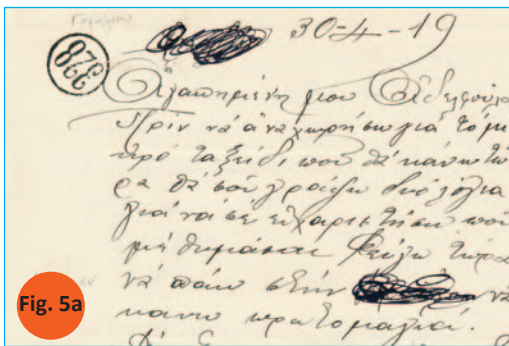 30-4-19
328
Ἀγαπημένη μου Ἀδελφούλα
Πρὶν νὰ ἀναχωρήσω γιὰ τὸ μι
κρὸ ταξεῖδι ποὺ θὰ κάνω τώ
ρα θὰ σοῦ γράψω δυὸ λόγια
γιὰ νὰ σὲ εὐχαριστήσω ποὺ
μὲ θυμᾶσαι φεύγω τώρα
νὰ πάω στὴν νὰ
κάνω πρωτομαγιά.
Fig. 5a